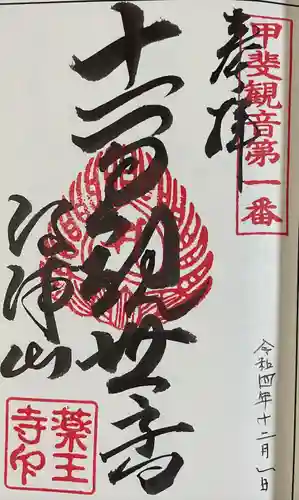 甲斐観音第一番
奉拝
十一面観世音
法浄山
薬王寺印
令和四年十二月一日